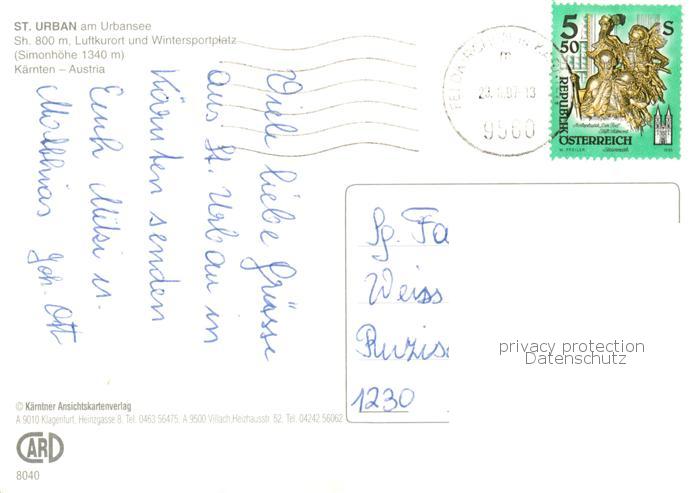 ST. URBAN am Urbansee
Sh. 800 m, Luftkurort und Wintersportplatz
(Simonhöhe 1340 m)
Kärnten – Austria
Viele liebe Grüsse
aus St. Urban in
Kärnten senden
Euch Mitsi u.
Matthias Joh. Ott
FELDK
23. 97-13
9560
5 50 S
REPUBLIK
ÖSTERREICH
Sg. Fa
Weiss
1230
privacy protection
Datenschutz
© Kärntner Ansichtskartenverlag
A 9010 Klagenfurt, Heinzgasse 8, Tel. 0463 56475, A 9500 Villach, Heizhausstr. 62, Tel. 04242 56062
CARD
8040